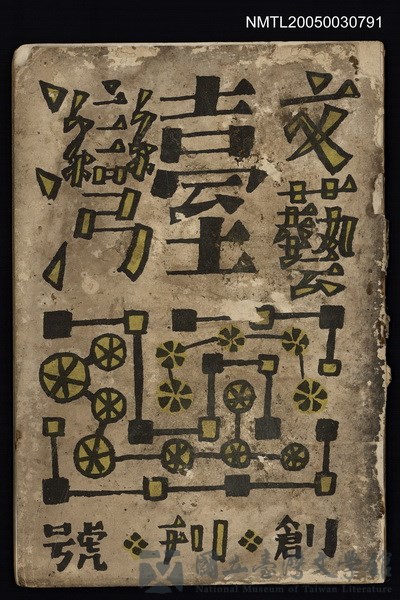 NMTL20050030791
文藝
臺
灣
創刊號
國立臺灣文學館
National Museum of Taiwan Literature